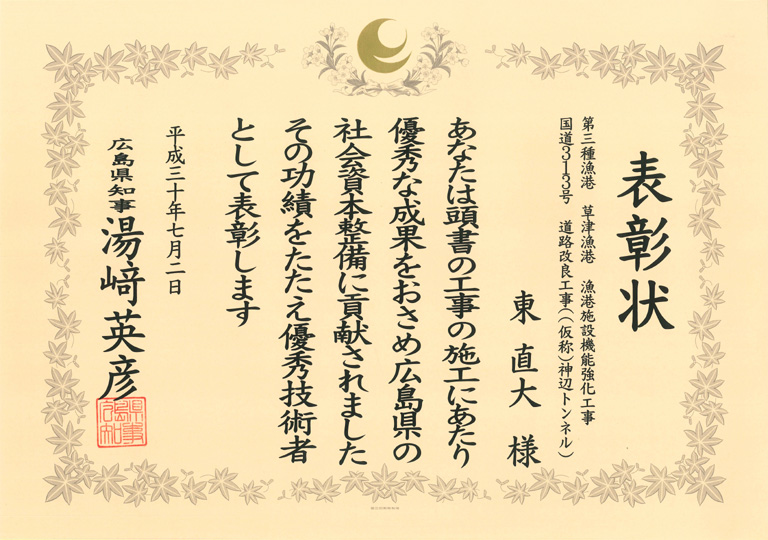 表彰状
第三種漁港 草津漁港 漁港施設機能強化工事
国道313号 道路改良工事((仮称)神辺トンネル)
東 直大 様
あなたは頭書の工事の施工にあたり
優秀な成果をおさめ広島県の
社会資本整備に貢献されました
その功績をたたえ優秀技術者
として表彰します
平成三十年七月二日
広島県知事 湯﨑英彦
広島県知事